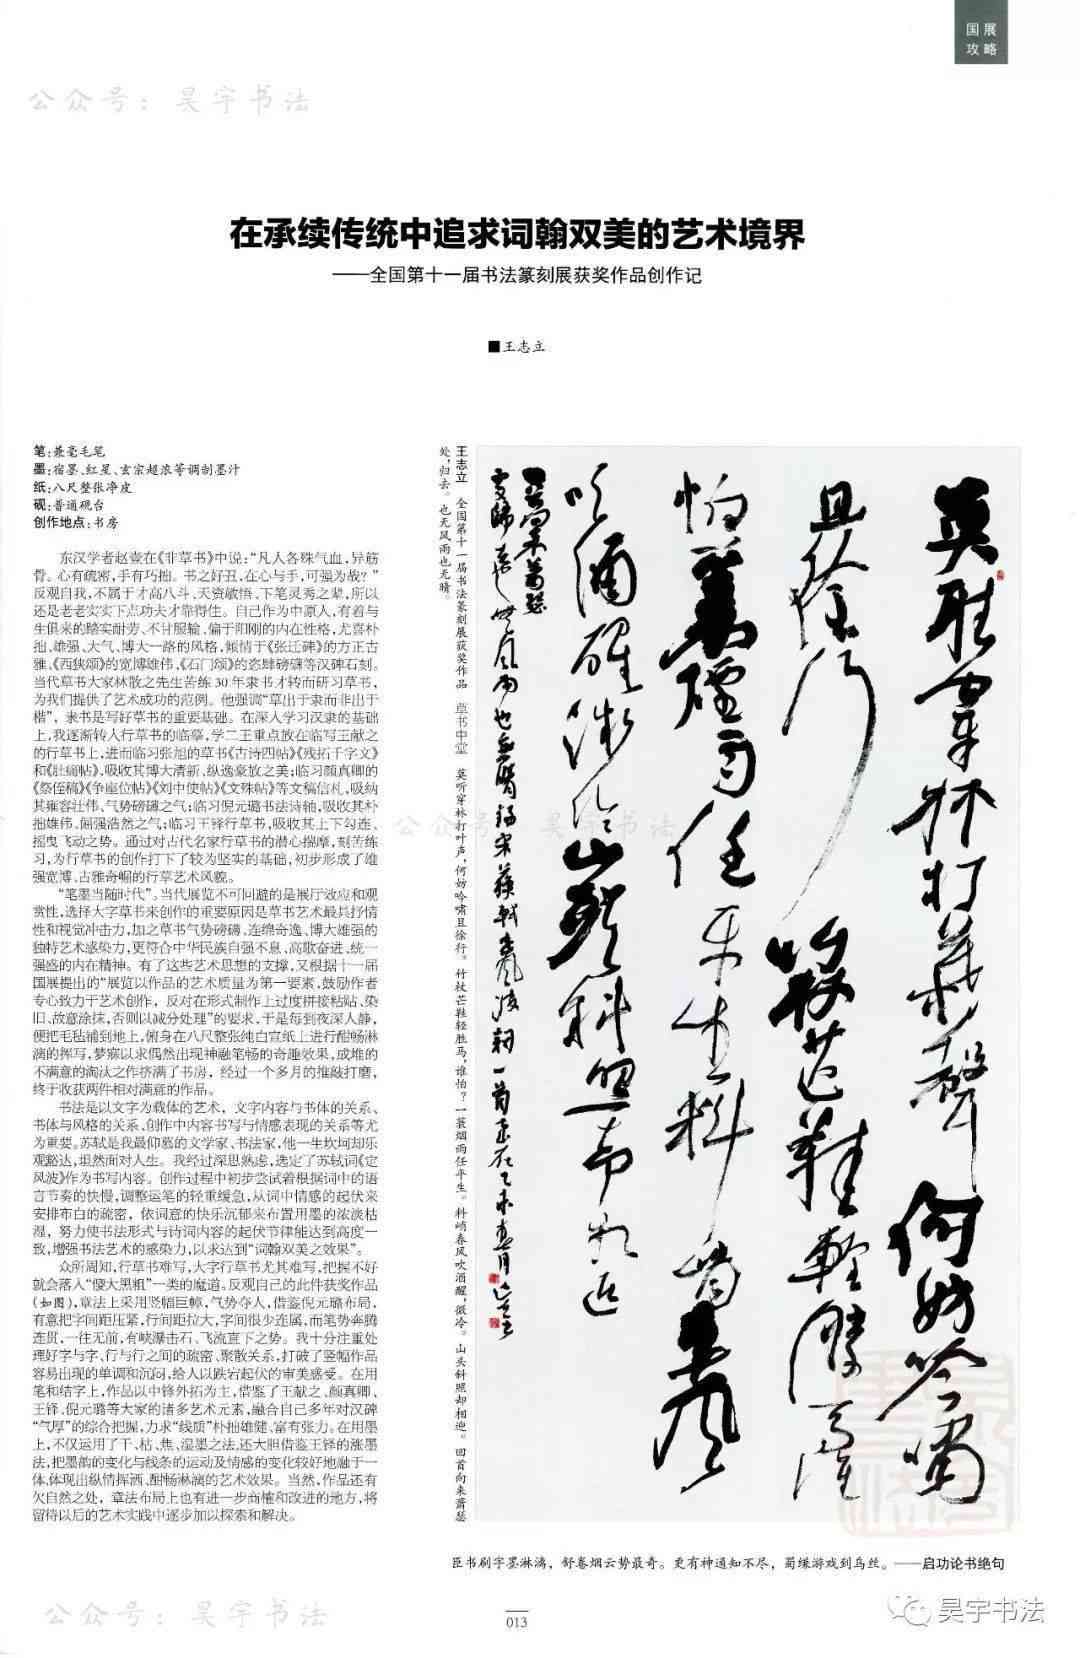 国展
攻略
公众号：昊宇书法
在承续传统中追求词翰双美的艺术境界
——全国第十一届书法篆刻展获奖作品创作记
■王志立
笔:兼毫毛笔
墨:宿墨、红星、玄宗超浓等调制墨汁
纸:八尺整张净皮
砚:普通砚台
创作地点:书房
东汉学者赵壹在《非草书》中说:“凡人各殊气血,异筋
骨。心有疏密,手有巧拙。书之好丑,在心与手,可强为哉？”
反观自我,不属于才高八斗、天资敏悟、下笔灵秀之辈,所以
还是老老实实下点功夫才靠得住。自己作为中原人,有着与
生俱来的踏实耐劳、不甘服输、偏于阳刚的内在性格,尤喜朴
拙、雄强、大气、博大一路的风格,倾情于《张迁碑》的方正古
雅、《西狭颂》的宽博雄伟、《石门颂》的恣肆磅礴等汉碑石刻。
当代草书大家林散之先生苦练30年隶书才转而研习草书,
为我们提供了艺术成功的范例。他强调“草出于隶而非出于
楷”，隶书是写好草书的重要基础。在深入学习汉隶的基础
上,我逐渐转入行草书的临摹,学二王重点放在临写王献之
的行草书上,进而临习张旭的草书《古诗四帖》《残拓千字文》
和《肚痛帖》,吸收其博大清新、纵逸豪放之美;临习颜真卿的
《祭侄稿》《争座位帖》《刘中使帖》《文殊帖》等文稿信札,吸纳
其雍容壮伟、气势磅礴之气;临习倪元璐书法诗轴,吸收其朴
拙雄伟、倔强浩然之气;临习王铎行草书,吸收其上下勾连、
摇曳飞动之势。通过对古代名家行草书的潜心揣摩,刻苦练
习,为行草书的创作打下了较为坚实的基础,初步形成了雄
强宽博、古雅奇崛的行草艺术风貌。
“笔墨当随时代”。当代展览不可回避的是展厅效应和观
赏性,选择大字草书来创作的重要原因是草书艺术最具抒情
性和视觉冲击力,加之草书气势磅礴、连绵奇逸、博大雄强的
独特艺术感染力,更符合中华民族自强不息、高歌奋进、统一
强盛的内在精神。有了这些艺术思想的支撑,又根据十一届
国展提出的“展览以作品的艺术质量为第一要素,鼓励作者
专心致力于艺术创作，反对在形式制作上过度拼接粘贴、染
旧、故意涂抹,否则以减分处理”的要求,于是每到夜深人静,
便把毛毡铺到地上,俯身在八尺整张纯白宣纸上进行酣畅淋
漓的挥写,梦寐以求偶然出现神融笔畅的奇趣效果,成堆的
不满意的淘汰之作挤满了书房，经过一个多月的推敲打磨,
终于收获两件相对满意的作品。
书法是以文字为载体的艺术，文字内容与书体的关系、
书体与风格的关系、创作中内容书写与情感表现的关系等尤
为重要。苏轼是我最仰慕的文学家、书法家,他一生坎坷却乐
观豁达,坦然面对人生。我经过深思熟虑,选定了苏轼词《定
风波》作为书写内容。创作过程中初步尝试着根据词中的语
言节奏的快慢,调整运笔的轻重缓急,从词中情感的起伏来
安排布白的疏密，依词意的快乐沉郁来布置用墨的浓淡枯
湿，努力使书法形式与诗词内容的起伏节律能达到高度一
致,增强书法艺术的感染力,以求达到“词翰双美之效果”。
众所周知,行草书难写,大字行草书尤其难写,把握不好
就会落入“傻大黑粗”一类的魔道。反观自己的此件获奖作品
(如图),章法上采用竖幅巨幛,气势夺人,借鉴倪元璐布局,
有意把字间距压紧,行间距拉大,字间很少连属,而笔势奔腾
连贯,一往无前,有峡瀑击石、飞流直下之势。我十分注重处
理好字与字、行与行之间的疏密、聚散关系,打破了竖幅作品
容易出现的单调和沉闷,给人以跌宕起伏的审美感受。在用
笔和结字上,作品以中锋外拓为主,借鉴了王献之、颜真卿、
王铎、倪元璐等大家的诸多艺术元素,融合自己多年对汉碑
“气厚”的综合把握,力求“线质”朴拙雄健、富有张力。在用墨
上,不仅运用了干、枯、焦、湿墨之法,还大胆借鉴王铎的涨墨
法,把墨韵的变化与线条的运动及情感的变化较好地融于一
体,体现出纵情挥洒、酣畅淋漓的艺术效果。当然,作品还有
欠自然之处，章法布局上也有进一步商榷和改进的地方,将
留待以后的艺术实践中逐步加以探索和解决。
王志立 全国第十一届书法篆刻展获奖作品 草书中堂 莫听穿林打叶声,何妨吟啸且徐行。竹杖芒鞋轻胜马,谁怕？一蓑烟雨任平生。料峭春风吹酒醒,微冷。山头斜照却相迎。回首向来萧瑟
处,归去。也无风雨也无晴。
莫听穿林打叶声何妨吟啸
且徐行竹杖芒鞋轻胜马谁
怕蓑烟雨任平生料峭春风
吹酒醒微冷山头斜照却相迎
公众号：昊宇书法
臣书刷字墨淋漓，舒卷烟云势最奇。更有神通知不尽，蜀缣游戏到乌丝。——启功论书绝句
公众号：昊宇书法
013
昊宇书法